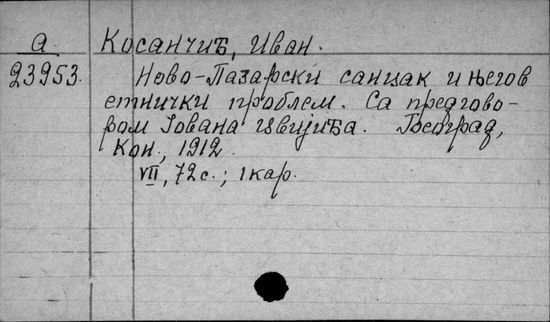 а Косанчић, Иван.
23953. Ново-Пазарски санџак и његов
етнички проблем. Са предгово-
ром Јована Цвијића. Београд,
Кон., 1912.
VII, 72 с.; 1 кар.